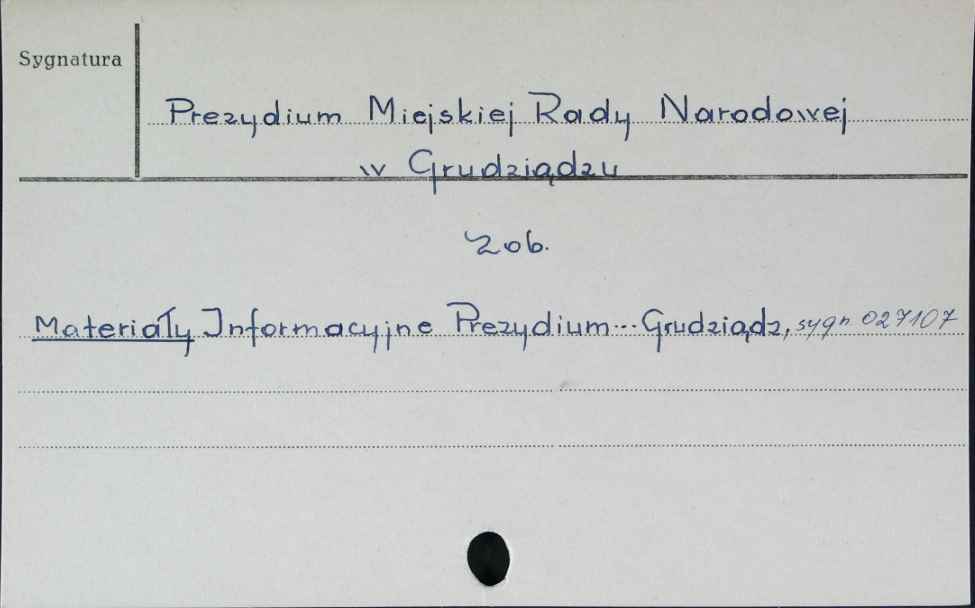 Sygnatura
Prezydium Miejskiej Rady Narodowej
w Grudziądzu
Zob.
Materiały Informacyjne Prezydium... Grudziądz, sygn. 027107